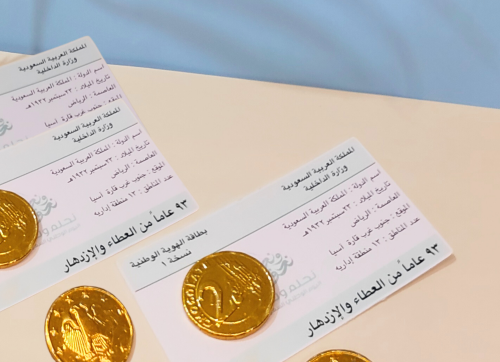 المملكة العربية السعودية
وزارة الداخلية
اسم الدولة : المملكة العربية السعودية
تاريخ الميلاد : ٢٣سبتمبر ١٩٣٢هـ
العاصمة : الرياض
الموقع : جنوب غرب قارة آسيا
المملكة العربية السعودية
وزارة الداخلية
اسم الدولة : المملكة العربية السعودية
تاريخ الميلاد : ٢٣سبتمبر ١٩٣٢هـ
العاصمة : الرياض
الموقع : جنوب غرب قارة آسيا
عدد المناطق : ١٣ منطقة إدارية
٩٣ عاماً من العطاء والإزدهار
المملكة العربية السعودية
وزارة الداخلية
بطاقة الهوية الوطنية
نسخة ١
اسم الدولة : المملكة العربية السعودية
تاريخ الميلاد : ٢٣سبتمبر ١٩٣٢هـ
العاصمة : الرياض
الموقع : جنوب غرب قارة آسيا
عدد المناطق : ١٣ منطقة إدارية
نحلم و
٩٣ عاماً من العطاء والإزدهار
2